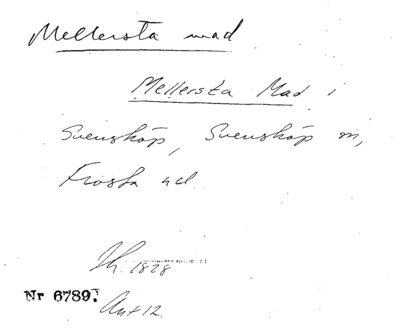 Mellersta mad
Mellersta Mad i
Svensköp, Svensköp sn,
Frosta hd.
Sk. 1828
Nr 6789.
Ant 12.